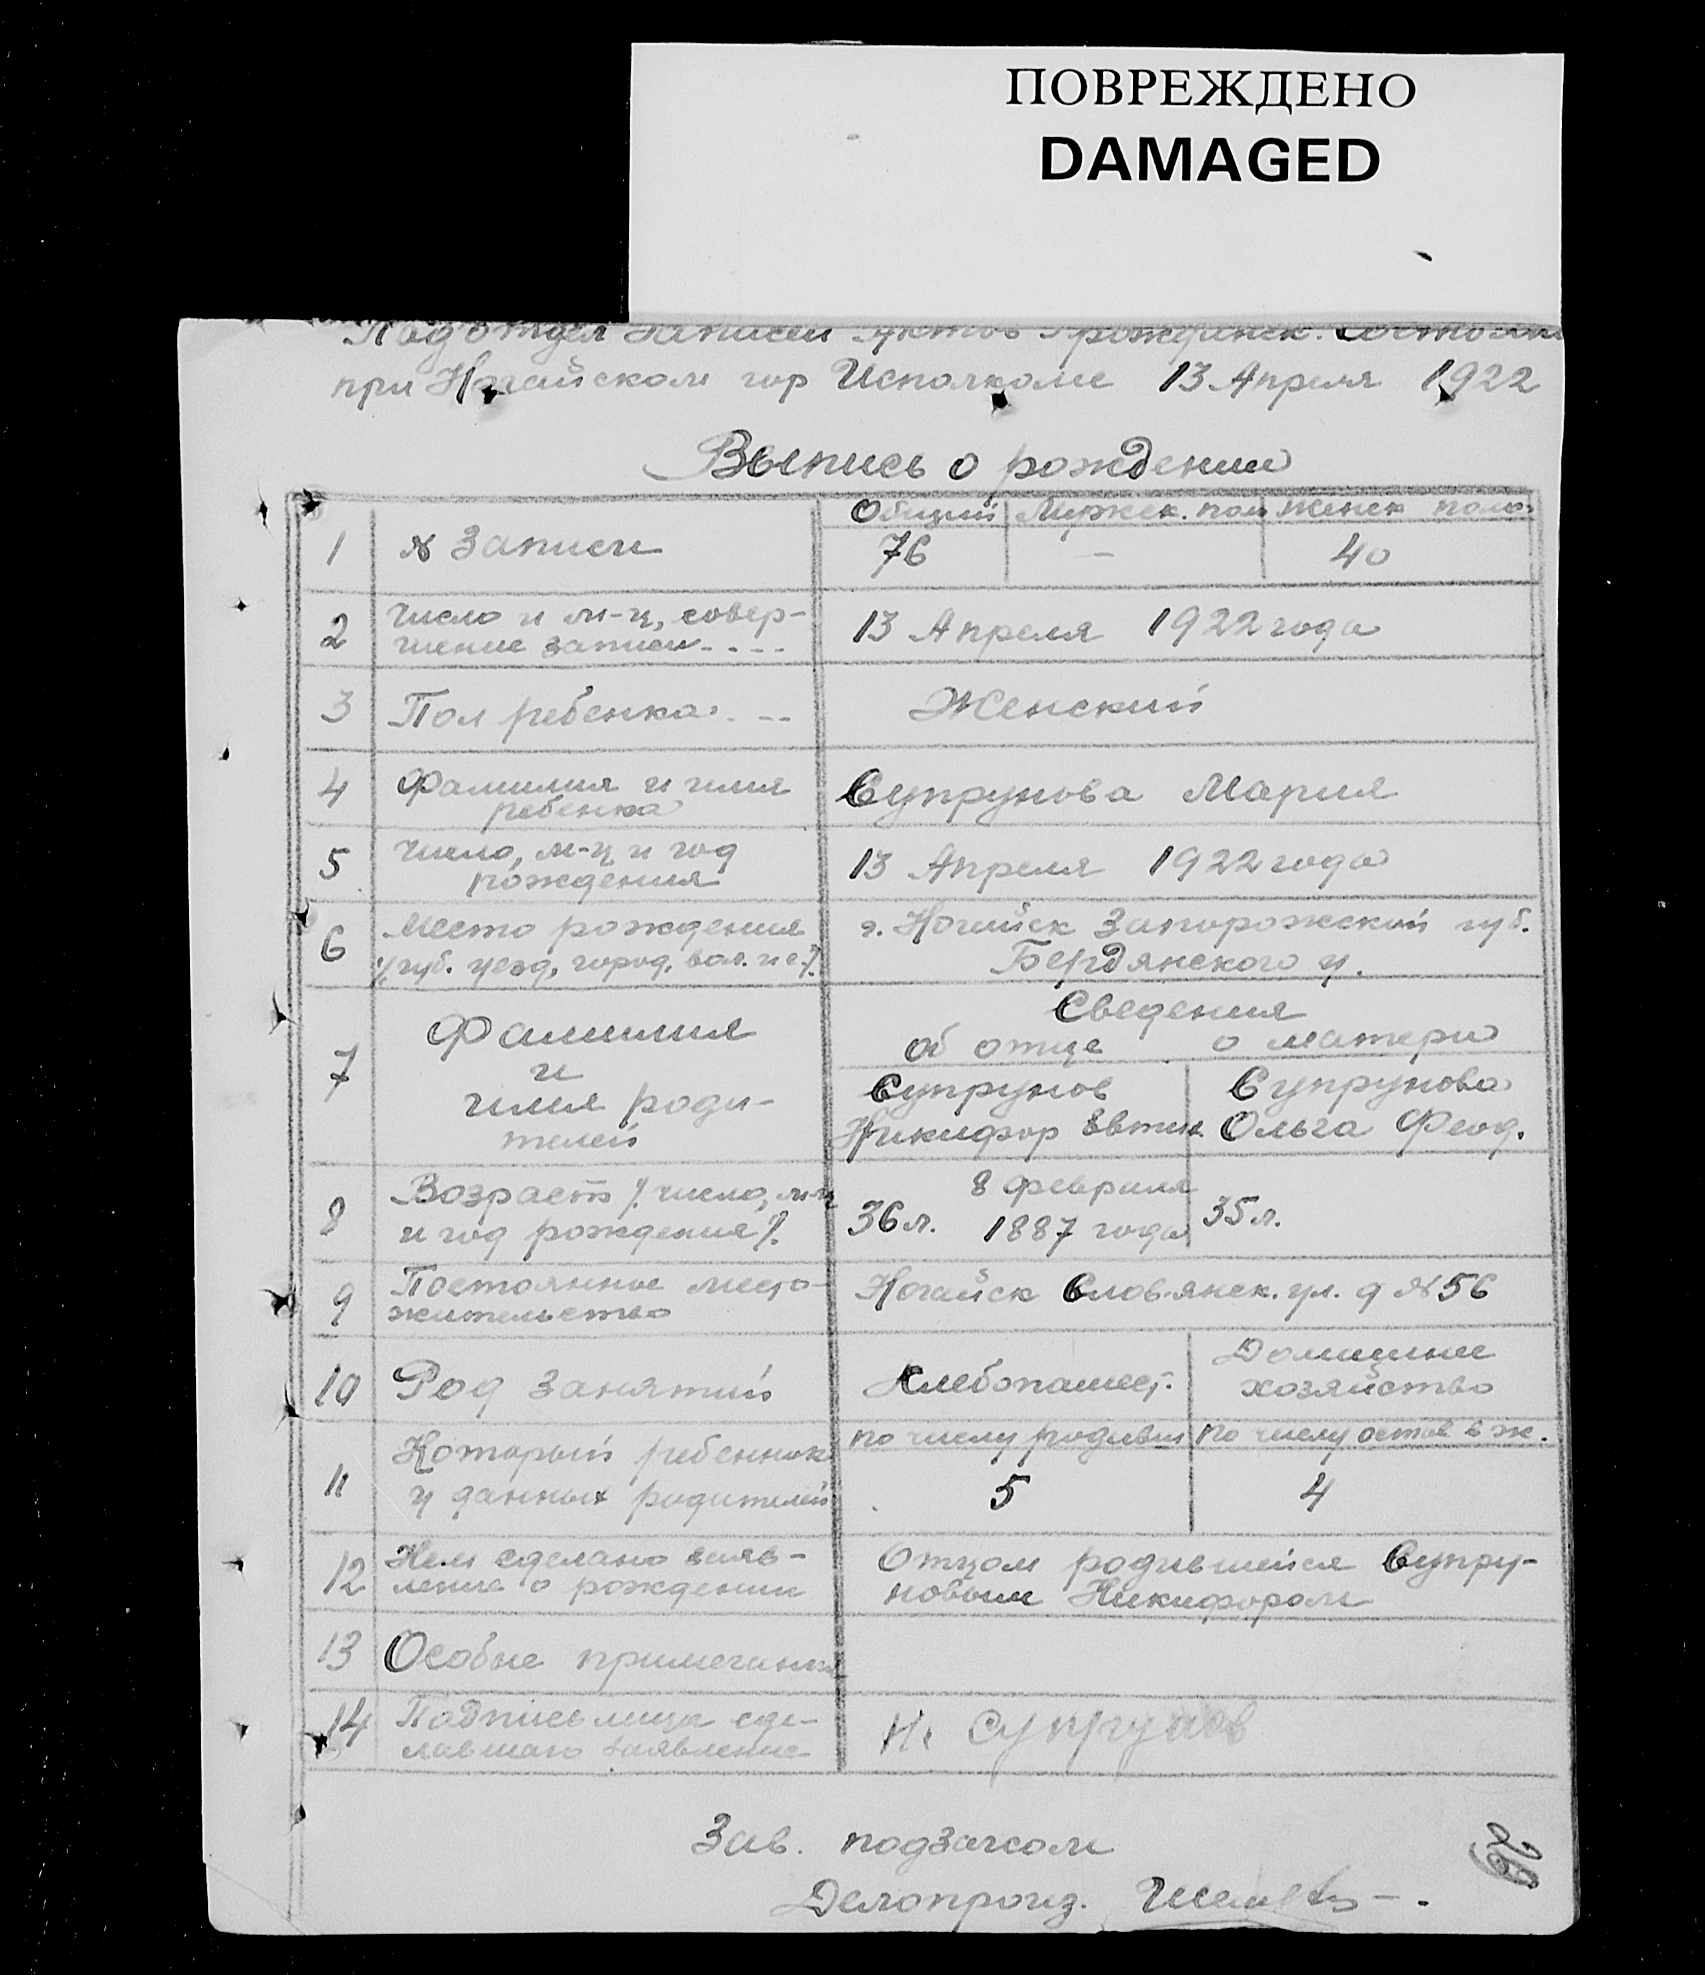 ПОВРЕЖДЕНО
DAMAGED
Подотдел Записей Актов Гражданск. Состояни
при Ногайском гор Исполкоме 13 Апреля 1922
Выпись о рождении
Общий Мужск. пол Женск пола
1 № Записи 76 — 40
2 Число и м-ц, совер-
шение записи.... 13 Апреля 1922 года
3 Пол ребенка. . -- Женский
4 Фамилия и имя
ребенка Супрунова Мария
5 Число, м-ц и год
рождения 13 Апреля 1922 года
6 Место рождения г. Ногайск Запорожской губ.
/губ. уезд, город, вол. и с./. Бердянского у.
7 Фамилия
и
имя роди-
телей
Сведения
об отце о матери
Супрунов Супрунова
Никифор Евтих. Ольга Феод.
8 Возраст /. число, м-ц
и год рождения /. 36 л. 8 февраля
1887 года 35 л.
9 Постоянное место-
жительство Ногайск Словянск. ул. д № 56
10 Род занятий Хлебопашест. Домашнее
хозяйство
11 Который ребеннок
у данных родителей
по числу родивш По числу остав в ж.
5 4
12 Кем сделано заяв-
ление о рождении
Отцом родившейся Супру-
новым Никифором
13 Особые примечания
14 Подпись лица сде-
лавшаго заявление Н. Супрунов
Зав. подзагсом
Делопроиз.